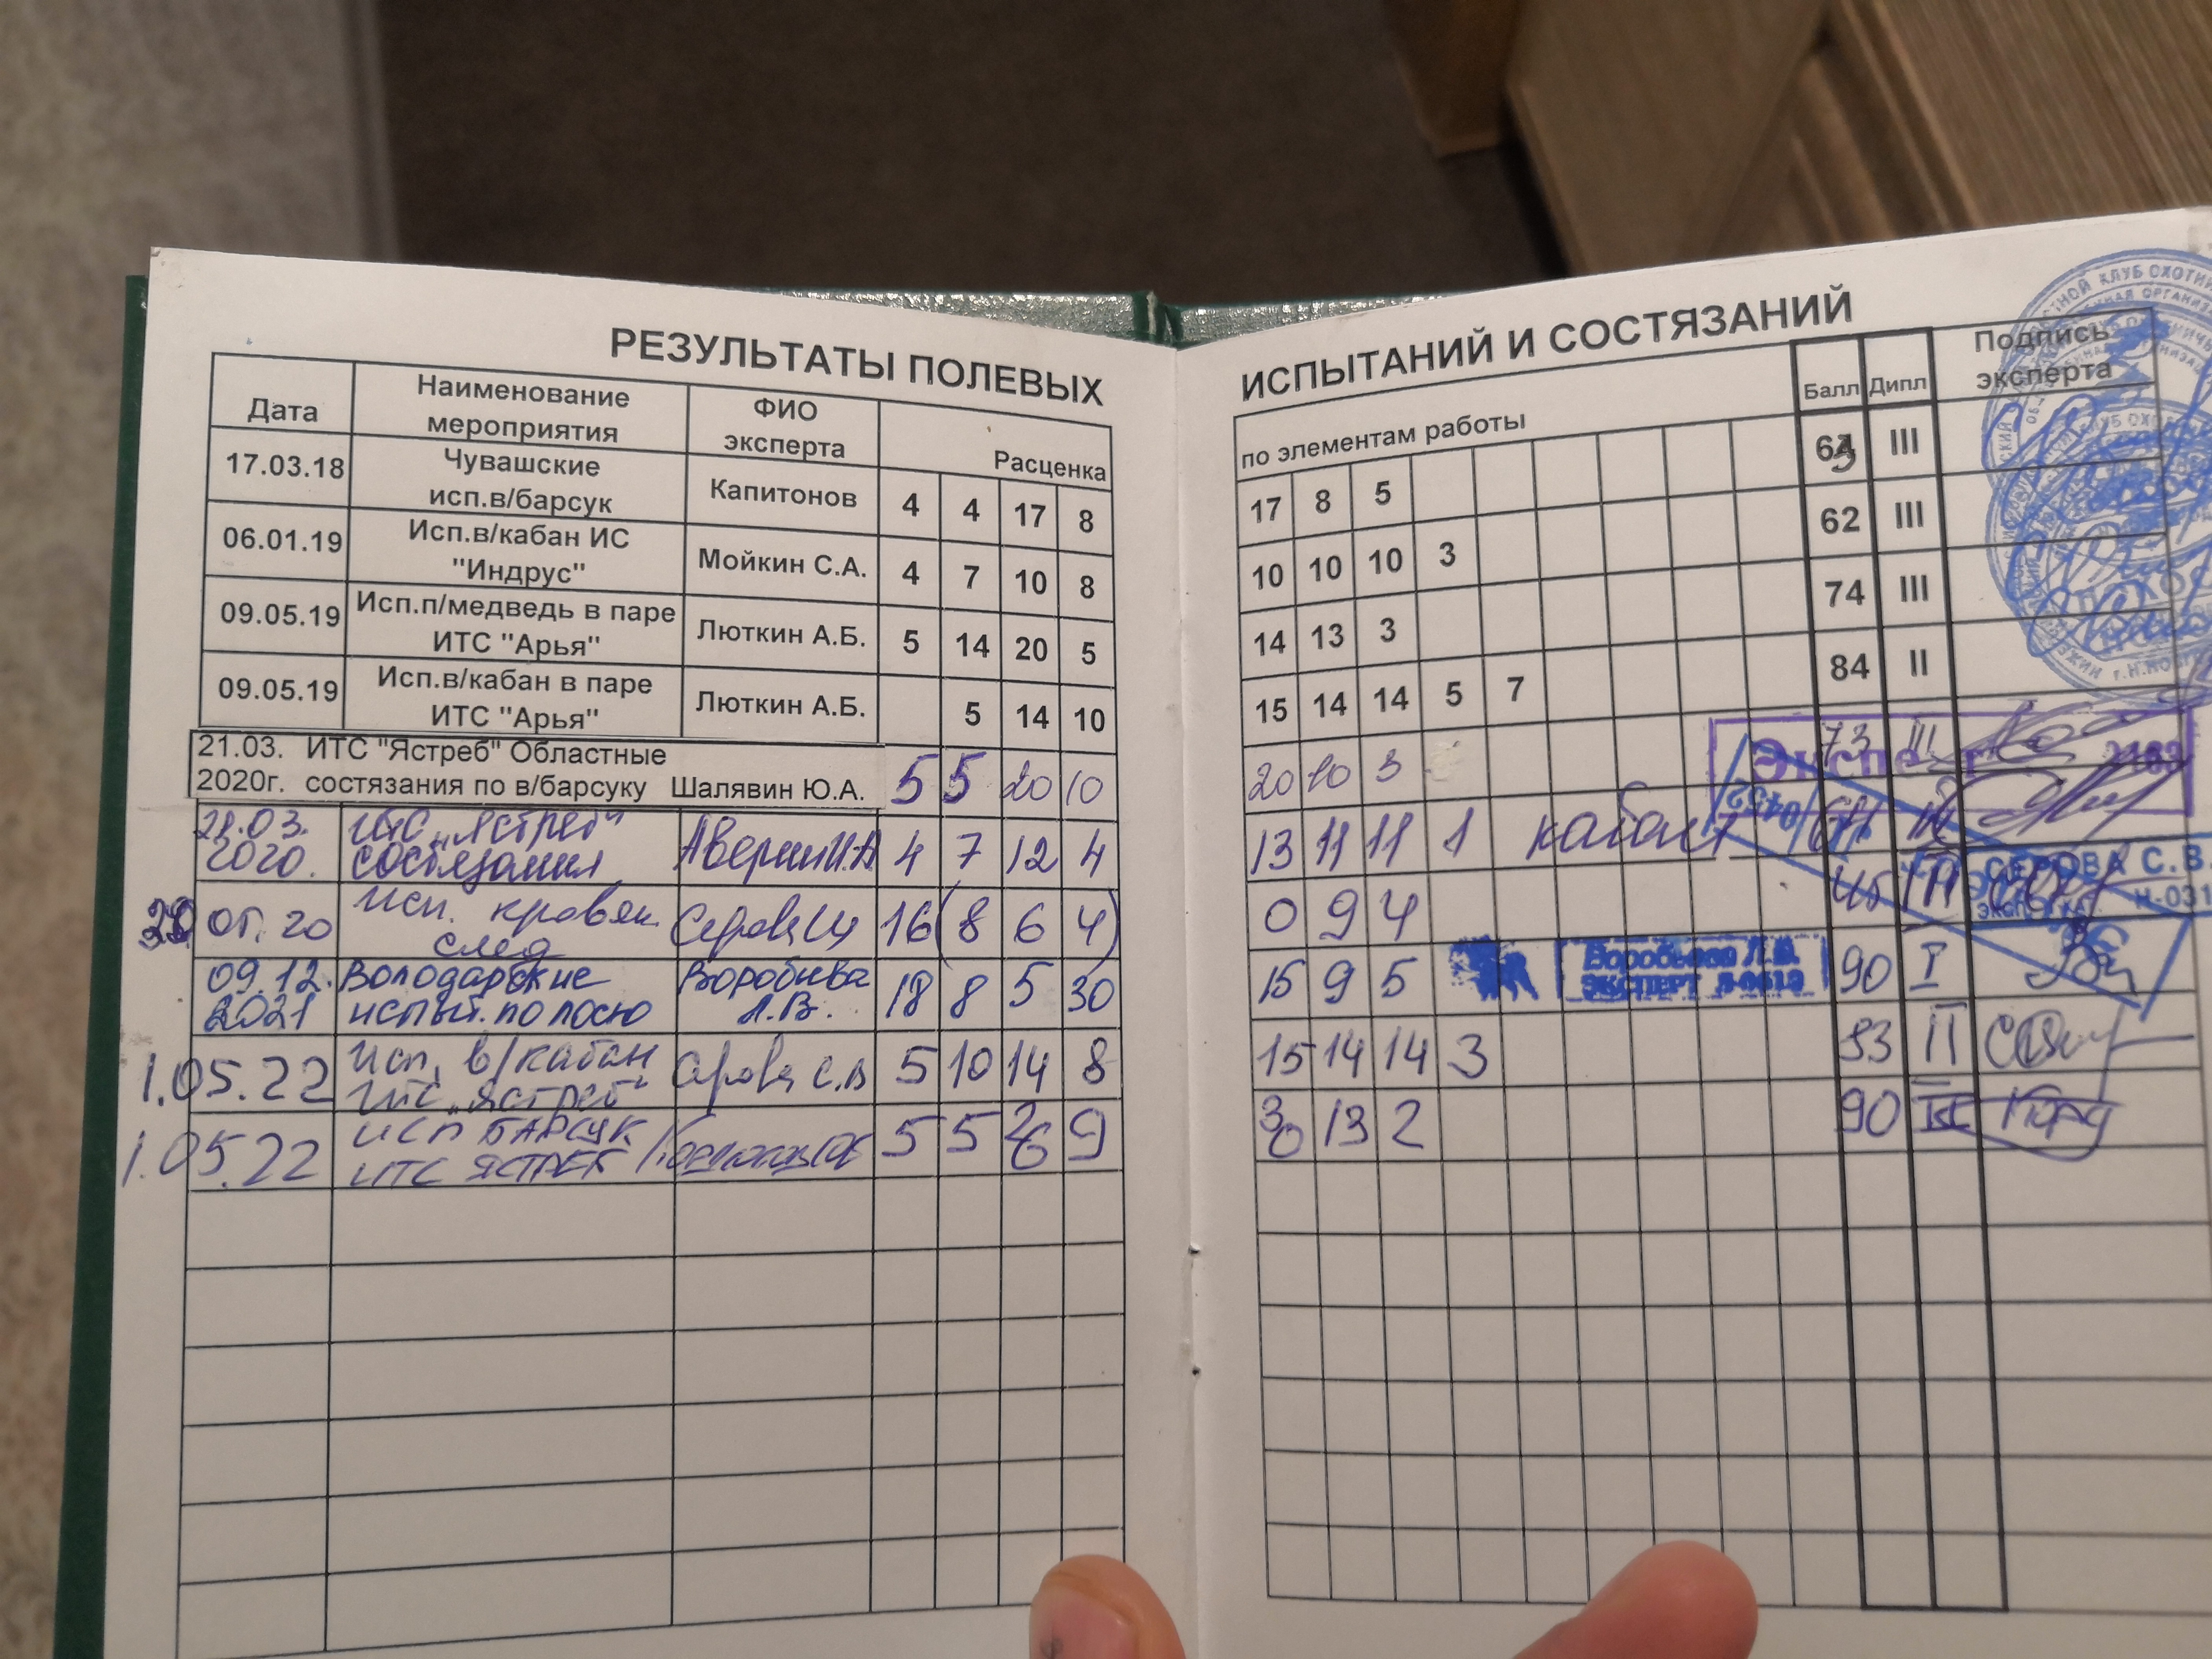 РЕЗУЛЬТАТЫ ПОЛЕВЫХ ИСПЫТАНИЙ И СОСТЯЗАНИЙ
Дата Наименование мероприятия ФИО эксперта Расценка по элементам работы Балл Дипл Подпись эксперта
17.03.18 Чувашские исп.в/барсук Капитонов 4 4 17 8 17 8 5 III
06.01.19 Исп.в/кабан ИС "Индрус" Мойкин С.А. 4 7 10 8 10 10 10 3 62 III
09.05.19 Исп.п/медведь в паре ИТС "Арья" Люткин А.Б. 5 14 20 5 14 13 3 74 III
09.05.19 Исп.в/кабан в паре ИТС "Арья" Люткин А.Б. 5 14 10 15 14 14 5 7 84 II
21.03. ИТС "Ястреб" Областные
2020г. состязания по в/барсуку Шалявин Ю.А. 5 5 20 10 20 10 3 73 III
Эксперт
21.03. 2020. ИТС "Ястреб" состязания Аверин И.А 4 7 12 4 13 11 11 1 кабан
0452
05.20 Исп. кровян. след Серова 16 (8 6 4) 0 9 4
СЕРОВА С.В.
Н-031
09.12. 2021 Володарские испыт. по лосю Воробьева Л.В. 18 8 5 30 15 9 5 90 I
Воробьева Л.В.
ЭКСПЕРТ
1.05.22 Исп. в/кабан ИТС "Ястреб" Серова С.В 5 10 14 8 15 14 14 3 II
1.05.22 ИСП БАРСУК ИТС ЯСТРЕБ 5 5 9 13 2 90